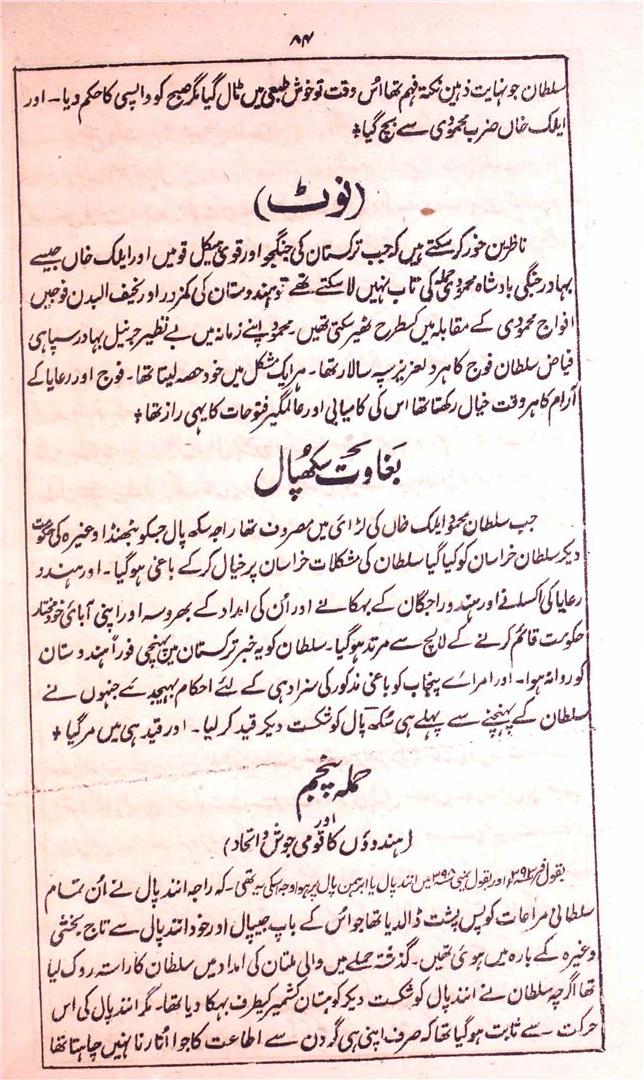 ۸۴
سلطان جو نہایت ذہین نکتہ فہم تھا اُس وقت تو خوش طبعی میں ٹال گیا مگر صبح کو واپسی کا حکم دیا۔ اور
ایلک خاں ضرب محمودی سے بچ گیا ✦
(نوٹ)
ناظرین غور کر سکتے ہیں کہ جب ترکستان کی جنگجو اور قوی ہیکل قومیں اور ایلک خاں جیسے
بہادر جنگی بادشاہ محمودی حملہ کی تاب نہیں لا سکتے تھے تو ہندوستان کی کمزور اور نحیف البدن فوجیں
افواج محمودی کے مقابلہ میں کسطرح ٹھیر سکتی تھیں۔ محمود اپنے زمانہ میں بے نظیر جرنیل بہادر سپاہی
فیاض سلطان فوج کا ہر دلعزیز سپہ سالار تھا۔ ہر ایک مشکل میں خود حصہ لیتا تھا۔ فوج اور رعایا کے
آرام کا ہر وقت خیال رکھتا تھا اس کی کامیابی اور عالمگیر فتوحات کا یہی راز تھا ✦
بغاوت سکھپال
جب سلطان محمود ایلک خاں کی لڑائی میں مصروف تھا راجہ سکھ پال جسکو بٹھنڈا وغیرہ کی حکومت
دیکر سلطان خراسان کو گیا گیا سلطان کی مشکلات خراسان پر خیال کر کے باغی ہو گیا۔ اور ہندو
رعایا کی اکسانے اور ہندو راجگان کے بہکانے اور اُن کی امداد کے بھروسہ اور اپنی آبائی خود مختار
حکومت قائم کرنے کے لالچ سے مرتد ہو گیا۔ سلطان کو یہ خبر ترکستان میں پہنچی فوراً ہندوستان
کو روانہ ہوا۔ اور امرائے پنجاب کو باغی مذکور کی سزا دہی کے لئے احکام بہیجدئے جنہوں نے
سلطان کے پہنچنے سے پہلے ہی سُکھ پال کو شکست دیکر قید کر لیا۔ اور قید ہی میں مر گیا ✦
حملہ پنجم
اور
(ہندوؤں کا قومی جوش و اتحاد)
بقول فرشتہ ۳۹۳ اور بقول یمینی ۳۹۸ میں انند پال یا ابرہمن پال پر ہوا وجہ اسکی یہ تھی۔ کہ راجہ انند پال نے اُن تمام
سلطانی مراعات کو پس پشت ڈالدیا تھا جو اُس کے باپ جیپال اور خود انند پال سے تاج بخشی
وغیرہ کے بارہ میں ہوئی تھیں۔ گذشتہ حملے میں والی ملتان کی امداد میں سلطان کا راستہ روک لیا
تھا اگرچہ سلطان نے انند پال کو شکست دیکر کوہستان کشمیر کیطرف بہکا دیا تھا۔ مگر انند پال کی اس
حرکت۔ سے ثابت ہو گیا تھا کہ صرف اپنی ہی گردن سے اطاعت کا جوا اُتارنا نہیں چاہتا تھا